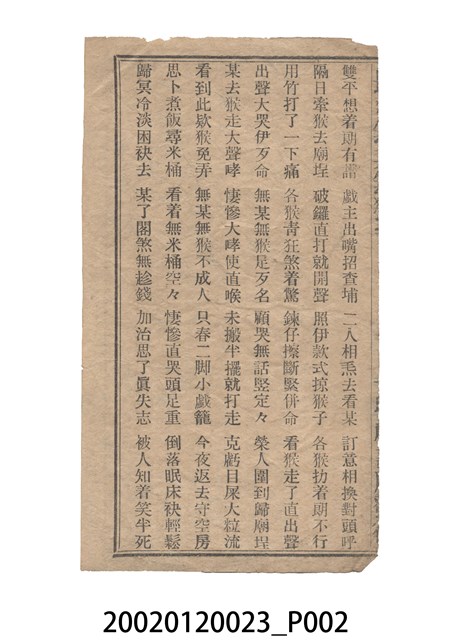 雙平想着期有譜　戲主出嘴招查埔　二人相𤆬去看某　訂意相換對頭呼
隔日牽猴去廟埕　破鑼直打就開聲　照伊款式掠猴子　各猴扐着期不行
用竹打了一下痛　各猴靑狂煞着驚　鍊仔擦斷緊併命　看猴走了直出聲
出聲大哭伊歹命　無某無猴足歹名　顧哭無話竪定々　榮人圍到歸廟埕
某去猴走大聲哮　悽慘大哮使直喉　未搬半擺就打走　克虧目屎大粒流
看到此欵猴兔弄　無某無猴不成人　只春二脚小戲籠　今夜返去守空房
思卜煮飯尋米桶　看着無米桶空々　悽慘直哭頭足重　倒落眠床袂輕鬆
歸冥冷淡困袂去　某了閣煞無趁錢　加治思了眞失志　被人知着笑半死
20020120023_P002